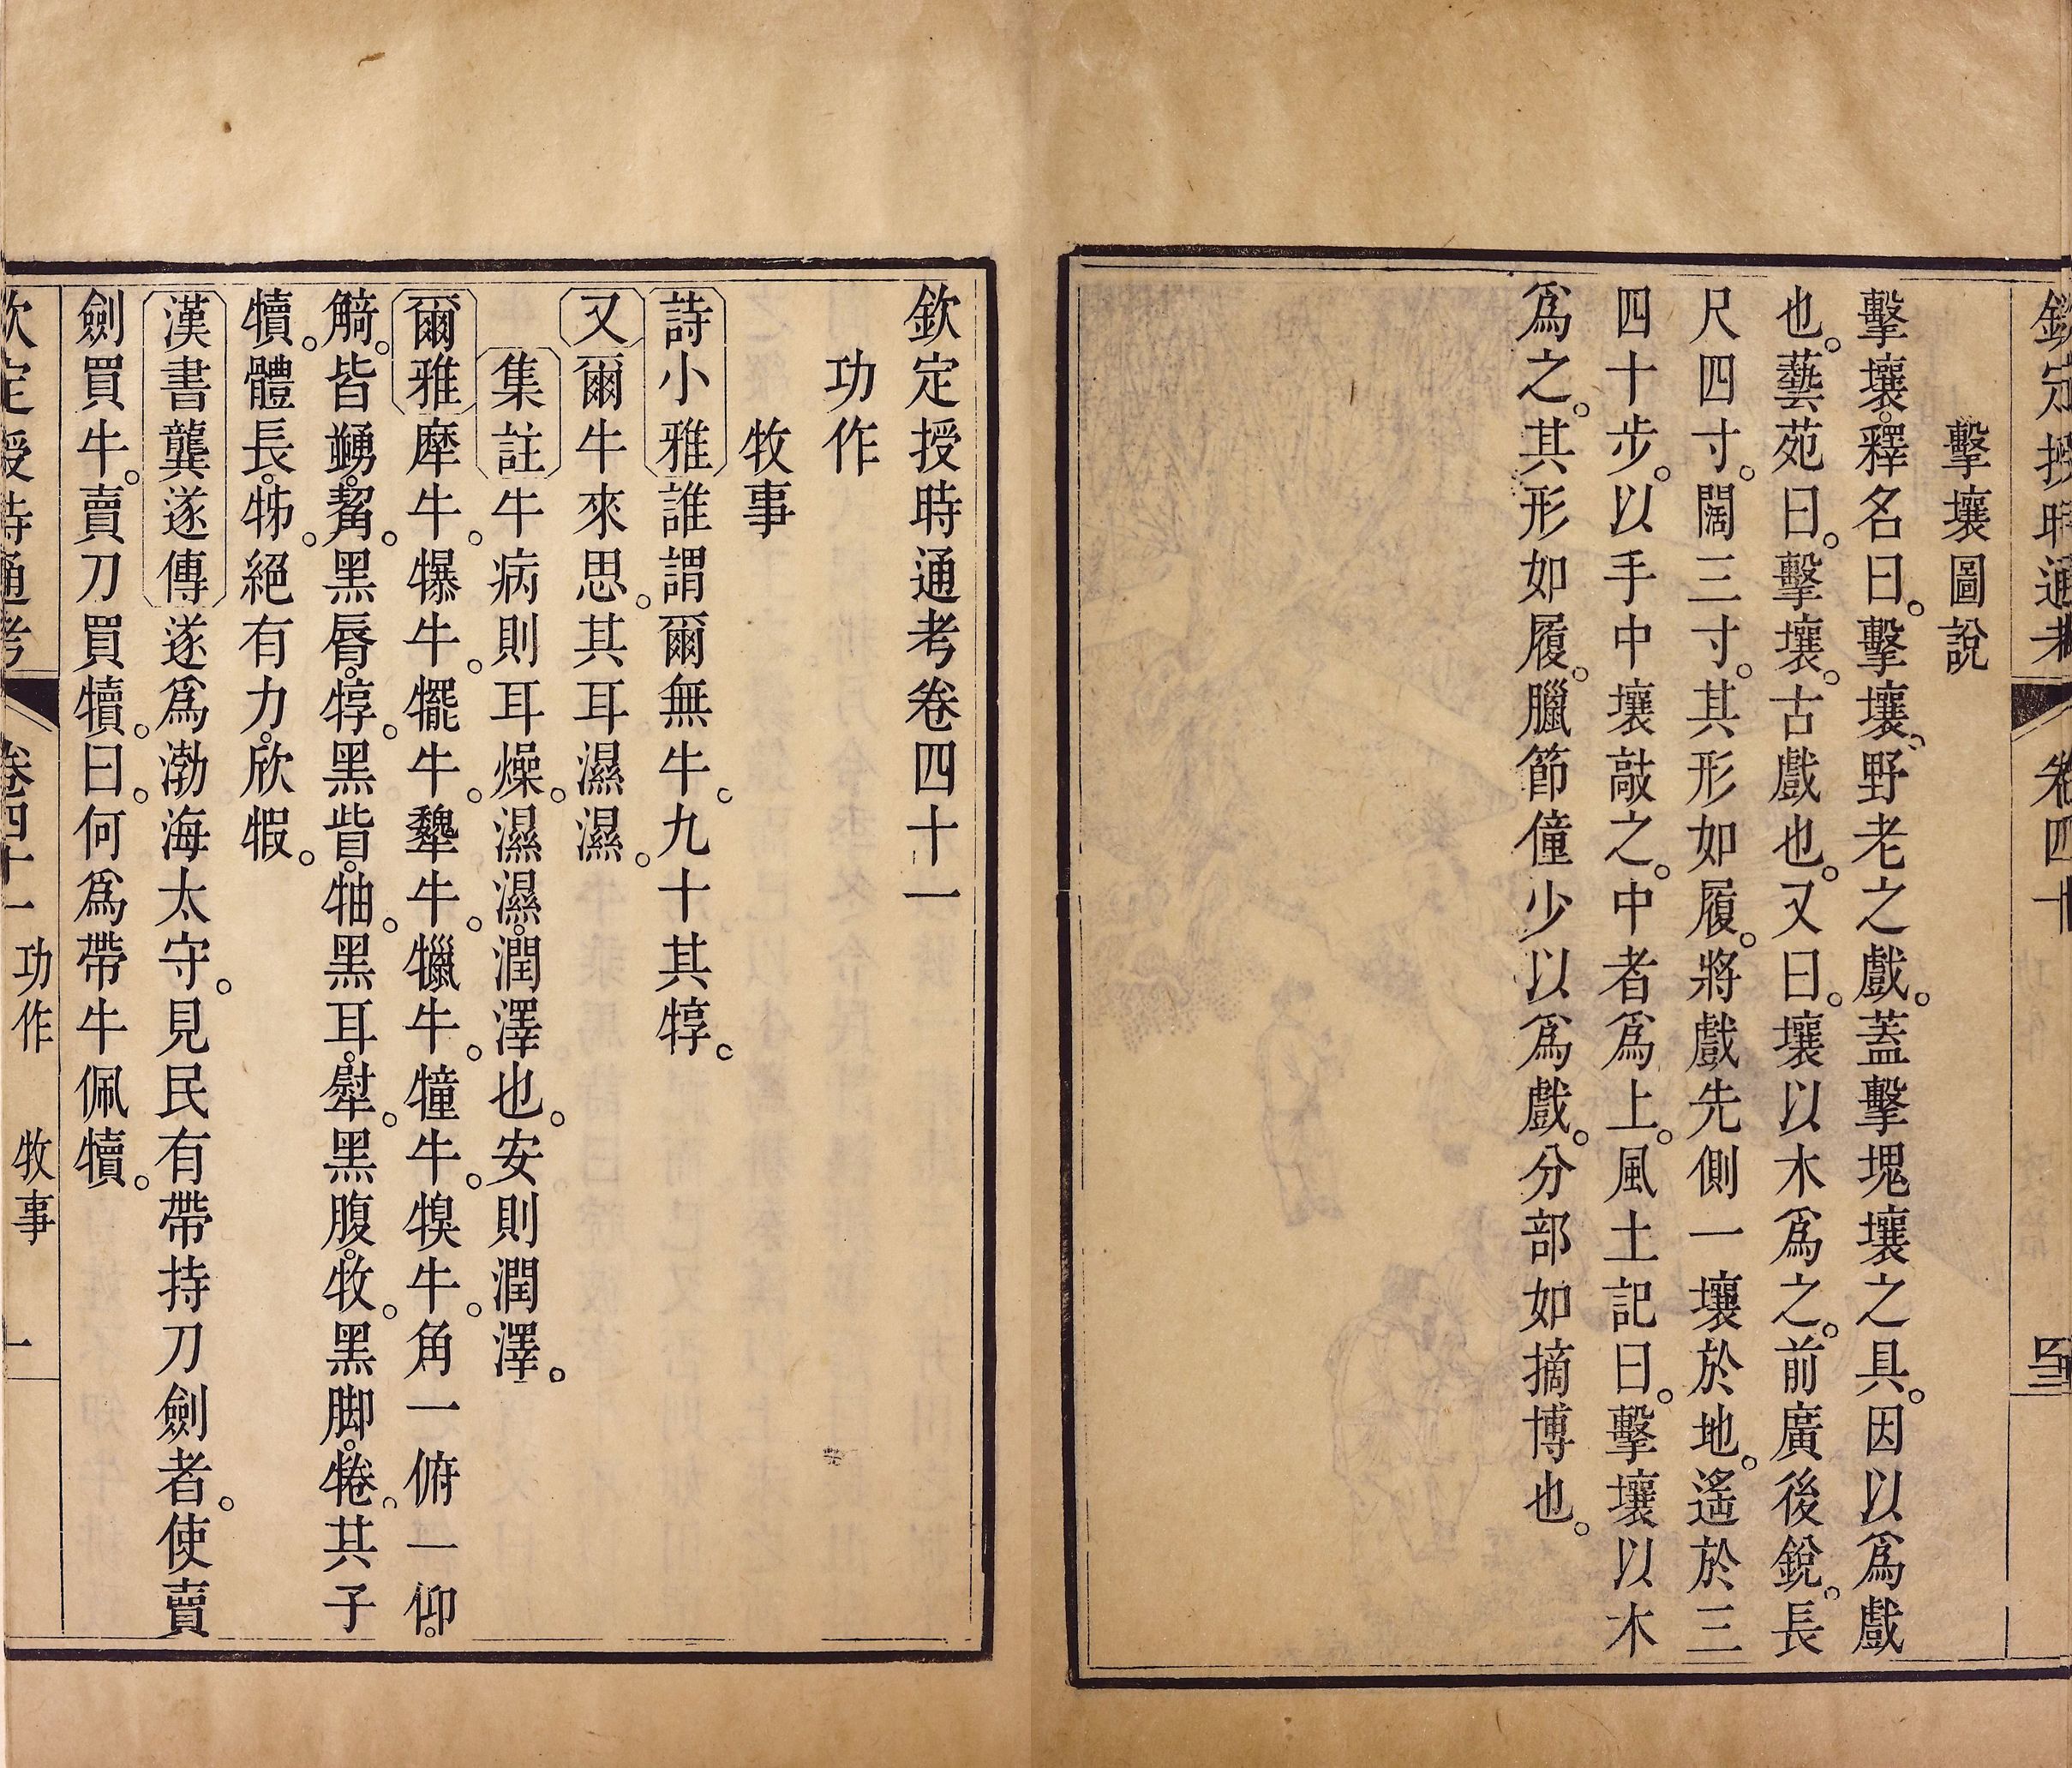 欽定授時通考
卷四十
擊壤圖說
擊壤。釋名曰。擊壤。野老之戲。蓋擊塊壤之具。因以爲戲
也。藝苑曰。擊壤。古戲也。又曰。壤以木爲之。前廣後銳。長
尺四寸。闊三寸。其形如履。將戲先側一壤於地。遙於三
四十步。以手中壤敲之。中者爲上。風土記曰。擊壤以木
爲之。其形如履。臘節僮少以爲戲。分部如摘博也。
欽定授時通考卷四十一
功作
牧事
詩小雅誰謂爾無牛。九十其犉。
又爾牛來思。其耳濕濕。
集註牛病則耳燥。濕濕。潤澤也。安則潤澤。
爾雅摩牛。犦牛。犤牛。犩牛。犣牛。犝牛。犑牛。角一俯一仰。
觭。皆踊。觢。黑脣。犉。黑眥。牰。黑耳。犚。黑腹。牧。黑脚。犈。其子
犢。體長。牬。絕有力。欣犌。
漢書龔遂傳遂爲渤海太守。見民有帶持刀劍者。使賣
劍買牛。賣刀買犢。曰。何爲帶牛佩犢。
欽定授時通考
卷四十一
功作
牧事
一